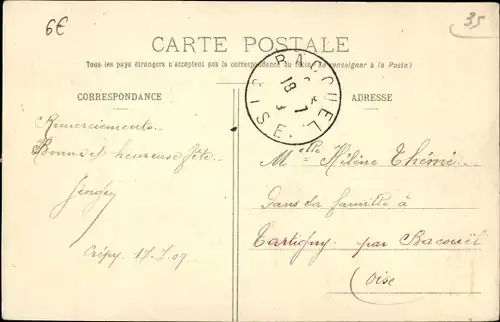 6€
35
CARTE POSTALE
Tous les pays étrangers n'acceptent pas la correspondance au (Se renseigner à la Poste)
CORRESPONDANCE
ADRESSE
BACOUEL
18
7
OISE
Remerciements..
Bonne et heureuse fête..
Georges
Crépy 17.7.07
Melle Hélène Thémé..
Dans sa famille à
Tartigny par Bacouël
Oise